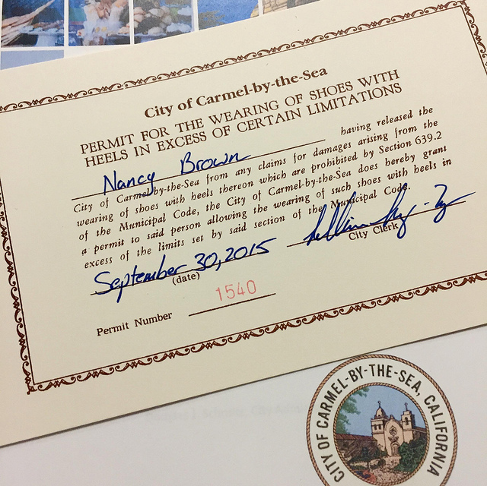 City of Carmel-by-the-Sea
PERMIT FOR THE WEARING OF SHOES WITH
HEELS IN EXCESS OF CERTAIN LIMITATIONS
Nancy Brown having released the
City of Carmel-by-the-Sea from any claims for damages arising from the
wearing of shoes with heels thereon which are prohibited by Section 639.2
of the Municipal Code, the City of Carmel-by-the-Sea does hereby grant
a permit to said person allowing the wearing of such shoes with heels in
excess of the limits set by said section of the Municipal Code.
September 30, 2015
(date)
City Clerk
Permit Number 1540
CITY OF CARMEL-BY-THE-SEA, CALIFORNIA